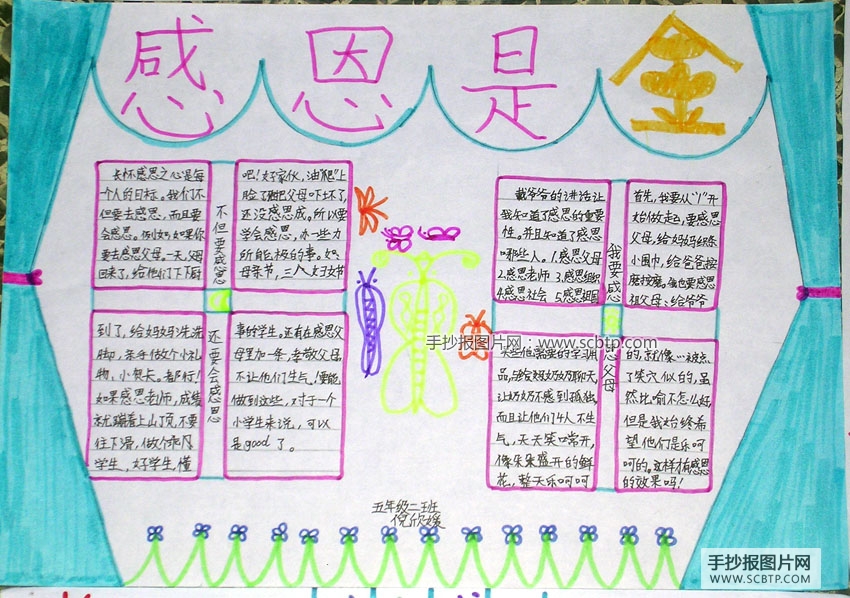 感恩是金
长怀感恩之心是每
个人的目标。我们不
但要去感恩，而且要
会感恩。例如：如果你
要去感恩父母。一天，父母
回来了，给他们下下厨
吧！好家伙，油“爬”上
脸了，难把父母吓坏了，
还没感恩成。所以要
学会感恩，办一些力
所能极的事。如
母亲节，三八妇女节
不但要感恩
还要会感恩
到了，给妈妈洗洗
脚，亲手做个小礼
物，小包长。都行！
如果感恩老师，成绩
就蹦着上山了顶，不要
往下滑，做个
学生，好学生，懂
事的学生。还有在感恩父
母里加一条，孝敬父母，
不让他们生气，便能
做到这些，对于一个
小学生来说，可以
是good了。
戴爷爷的讲话让
我知道了感恩的重要
性。并且知道了感恩
哪些人。1.感恩父母
2.感恩老师 3.感恩组织
4.感恩社会 5.感恩祖国
首先，我要从“1”开
始做走，要感恩
父母，给妈妈织条
小围巾，给爸爸按
摩按摩。我也要感恩
祖父母：给爷爷
我要感恩
恩父母
买些他需要的学习用
品，与给奶奶聊天，
让奶奶不感到孤独，
而且让他们4人不生
气，天天笑口常开，
像朵朵盛开的鲜
花，整天乐呵呵
的，就像被点
了笑穴似的，虽
然比喻不怎么好，
但是我始终希
望他们是乐呵
呵的。这样才有感恩
的效果吗！
手抄报图片网：www.scbtp.com
五年级二班
倪欣媛
手抄报图片网
WWW.SCBTP.COM